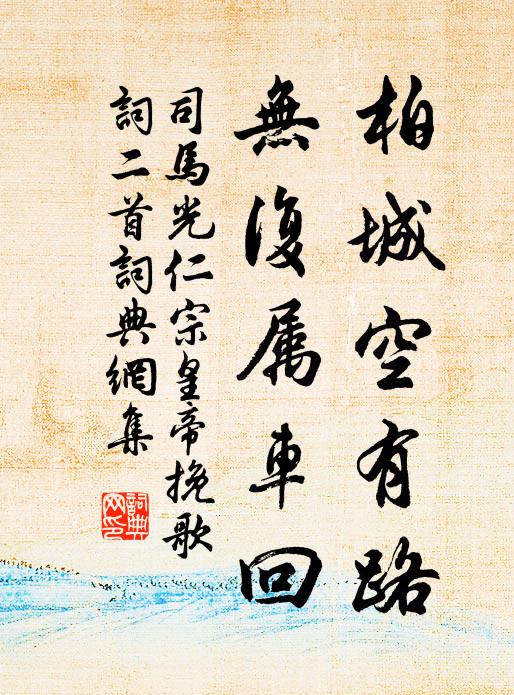 柏城空有路
無復属車回
司馬光仁宗皇帝挽歌
詞二首詞典網集
詞典網印